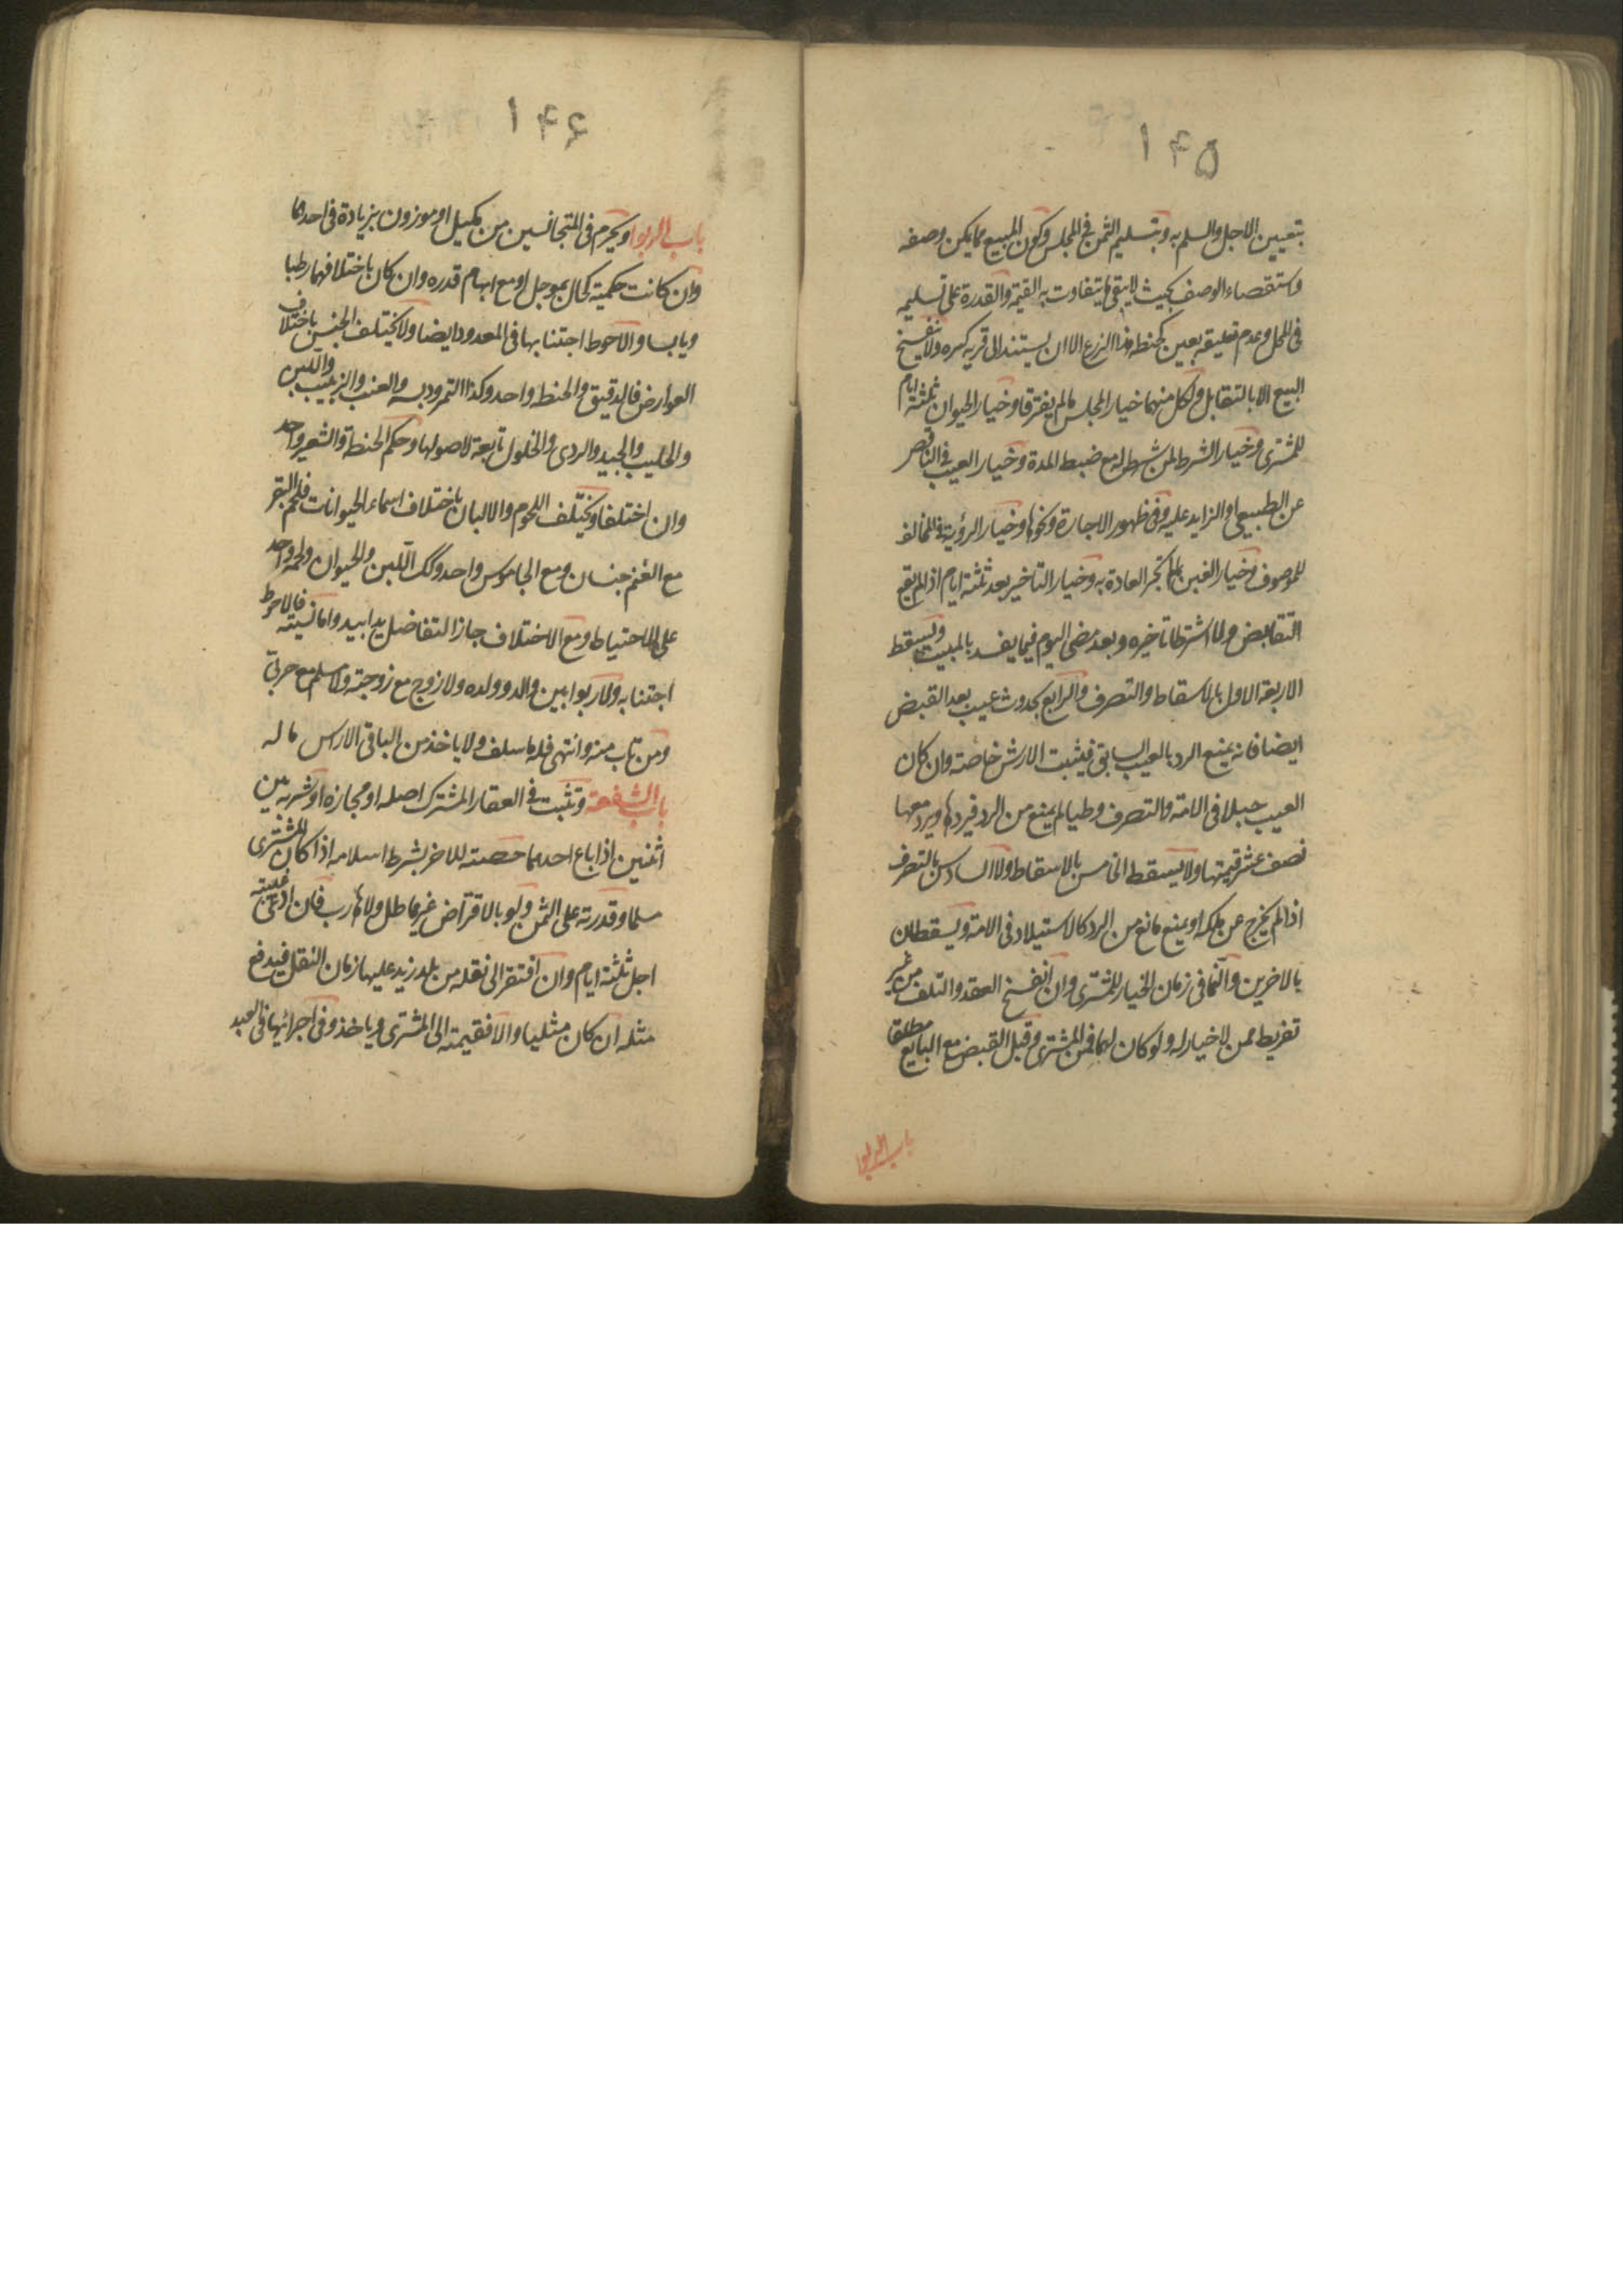 ١۴۵
بتعيين الاجل والسلم به وبتسليم الثمن في المجلس وكون المبيع مما يمكن وصفه
واستقصاء الوصف بحيث لا يبقى ما يتفاوت به القيمة والقدرة على تسليمه
في المحل وعدم تعليقه بعين كحنطة هذا الزرع الا ان يستند الى قرية كبيرة ولا ينفسخ
البيع الا بالتقابل ولكل منهما خيار المجلس ما لم يفترقا وخيار الحيوان ثلثة ايام
للمشترى وخيار الشرط لمن شرط له مع ضبط المدة وخيار العيب في الناقص
عن الطبيعى او الزايد عليه وفى ظهور الاجارة ونحوها وخيار الرؤية في المخالف
للموصوف وخيار الغبن بما لم تجر العادة به وخيار التاخير بعد ثلثة ايام اذا لم يقع
التقابض ولما اشترطا تاخيره وبعد مضى اليوم فيما يفسد بالمبيت ويسقط
الاربعة الاول بالاسقاط والتصرف والرابع بحدوث عيب بعد القبض
ايضا فانه يمنع الرد بالعيب السابق فيثبت الارش خاصة وان كان
العيب حبلا في الامة والتصرف وطيا لم يمنع من الرد فيردها ويرد معها
نصف عشر قيمتها ولا يسقط الخامس بالاسقاط ولا السادس بالتصرف
اذا لم يخرج عن ملكه او يمنع مانع من الرد كالاستيلاد في الامة ويسقطان
بالاخرين والنما في زمان الخيار للمشترى وان انفسخ العقد والتلف من غير
تفريط ممن لا خيار له ولو كان لهما فمن المشترى وقبل القبض مع البايع مطلقا
باب الربوا
١۴۶
باب الربوا ويحرم فى المتجانسين من مكيل او موزون بزيادة فى احدهما
وان كانت حكمية كحال بموجل او مع ابهام قدره وان كان باختلافهما رطبا
ويابسا والاحوط اجتنابها في المعدود ايضا ولا يختلف الجنس باختلاف
العوارض فالدقيق والحنطة واحد وكذا التمر ودبسه والعنب والزبيب واللبن
والحليب والجيد والردى والخلول تابعة لاصولها وحكم الحنطة والشعير واحد
وان اختلفا ويختلف اللحوم والالبان باختلاف اسماء الحيوانات فلحم البقر
مع الغنم جنسان ومع الجاموس واحد وكك اللبن والحيوان ولحمه واحد
على الاحتياط ومع الاختلاف جاز التفاضل يدا بيد واما نسيته فالاحوط
اجتنابه ولا ربوا بين والد وولده ولا زوج مع زوجته ولا مسلم مع حربى
ومن تاب منه وانتهى فله ما سلف ولا ياخذ من الباقى الا راس ماله
باب الشفعة وتثبت في العقار المشترك اصله او مجازه او شربه بين
اثنين اذا باع احدهما حصته للاخر بشرط اسلامه اذا كان المشترى
مسلما وقدرته على الثمن ولو بالاقتراض غير ماطل ولا هارب فان ادعى غيبته
اجل ثلثة ايام وان افتقر الى نقله من بلد زيد عليها زمان النقل فيدفع
مثله ان كان مثليا والا فقيمته الى المشترى وياخذ وفى اجرائها فى العبد